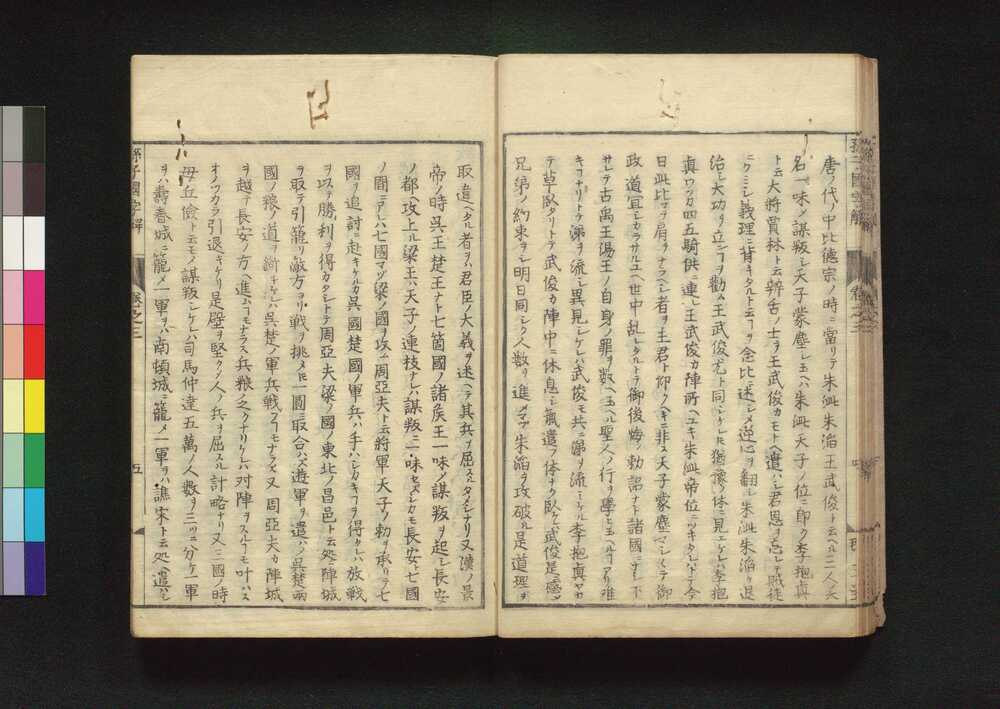 唐ノ代ノ中比德宗ノ時ニ當リテ朱泚朱滔王武俊ト云ヘル三人ノ兵
名一味メ謀叛シ天子蒙塵シ玉ヘハ朱泚天子ノ位ニ即ク李抱眞
ト云大將賈林ト云辨舌ノ士ヲ王武俊カモトヘ遣ハシ君恩ヲ忘レテ賊徒
ニクミシ義理ニ背キタルト云フヲ念比ニ述シメ逆心ヲ翻シ朱泚朱滔ヲ退
治シ大功ヲ立ンヿヲ勸ム王武俊尤ト同シケレ𪜈猶豫ノ体ニ見エケレハ李抱
眞ワツカ四五騎供ニ連レ王武俊カ陣所ヘユキ朱泚帝位ニツキタレハトテ今
日此比マテ肩ヲナラヘシ者ヲ主君ト仰クヘキニ非ス天子蒙塵マシマシテ御
政道宜シカラサルユヘ世中乱レタルトテ御後悔ノ勅詔ナト諸國ニ下シ玉
サレテ古禹王湯王ノ自身ノ罪ヲ數ヘ玉ヘル聖人ノ行ヲ學ヒ玉ヘルヿアリ難
キコナリトテ涕ヲ流シ異見シケレハ武俊モ共ニ涕ヲ流シケル李抱眞ヤカ
テ草臥タリトテ武俊カ陣中ニ休息シ氣遣フ体ナク臥ケレハ武俊是ニ感シ
兄弟ノ約束ヲシ明日同シク人數ヲ進メテ朱滔ヲ攻破ル是道理ヲ
取違ヘタル者ヲハ君臣ノ大義ヲ述ヘテ其兵ヲ屈スルタメシナリ又漢ノ景
帝ノ時呉王楚王ナト七箇國ノ諸侯王一味メ謀叛ヲ起シ長安
ノ都ヘ攻上ル梁王ハ天子ノ連枝ナレハ謀叛ニ一味セスシカモ長安ト七國
ノ間ニアレハ七國マツ梁ノ國ヲ攻ム周亞夫ト云將軍天子ノ勅ヲ承リテ七
國ヲ追討ニ起キケルカ呉國楚國ノ軍兵ハ手ハシカキコヲ得タレハ放戰
ヲ以テ勝利ヲ得カタシトテ周亞夫梁ノ國ノ東北ノ昌邑ト云処ニ陣城
ヲ取テ引籠リ敵方ヨリ戰ヲ挑メ𪜈一圓ニ取合ハス遊軍ヲ遣ハシ呉楚兩
國ノ粮ノ道ヲ斷キケレハ呉楚ノ軍兵戰フコモナラス又周亞夫カ陣城
ヲ越テ長安ノ方ヘ進ムコモナラス兵粮乏クナリケレハ対陣ヲスルコモ叶ハス
オノツカラ引退キケリ是壁ヲ堅クメ人ノ兵ヲ屈スル計略ナリ又三國ノ時
毋丘儉ト云モノ謀叛シケレハ司馬仲達五萬ノ人數ヲ三ツニ分ケ一軍
ヲハ壽春城ニ籠メ一軍ヲハ南頓城ニ籠メ一軍ヲハ譙宋ト云処ヘ遣ハシ
孫子國字解
卷之三
五